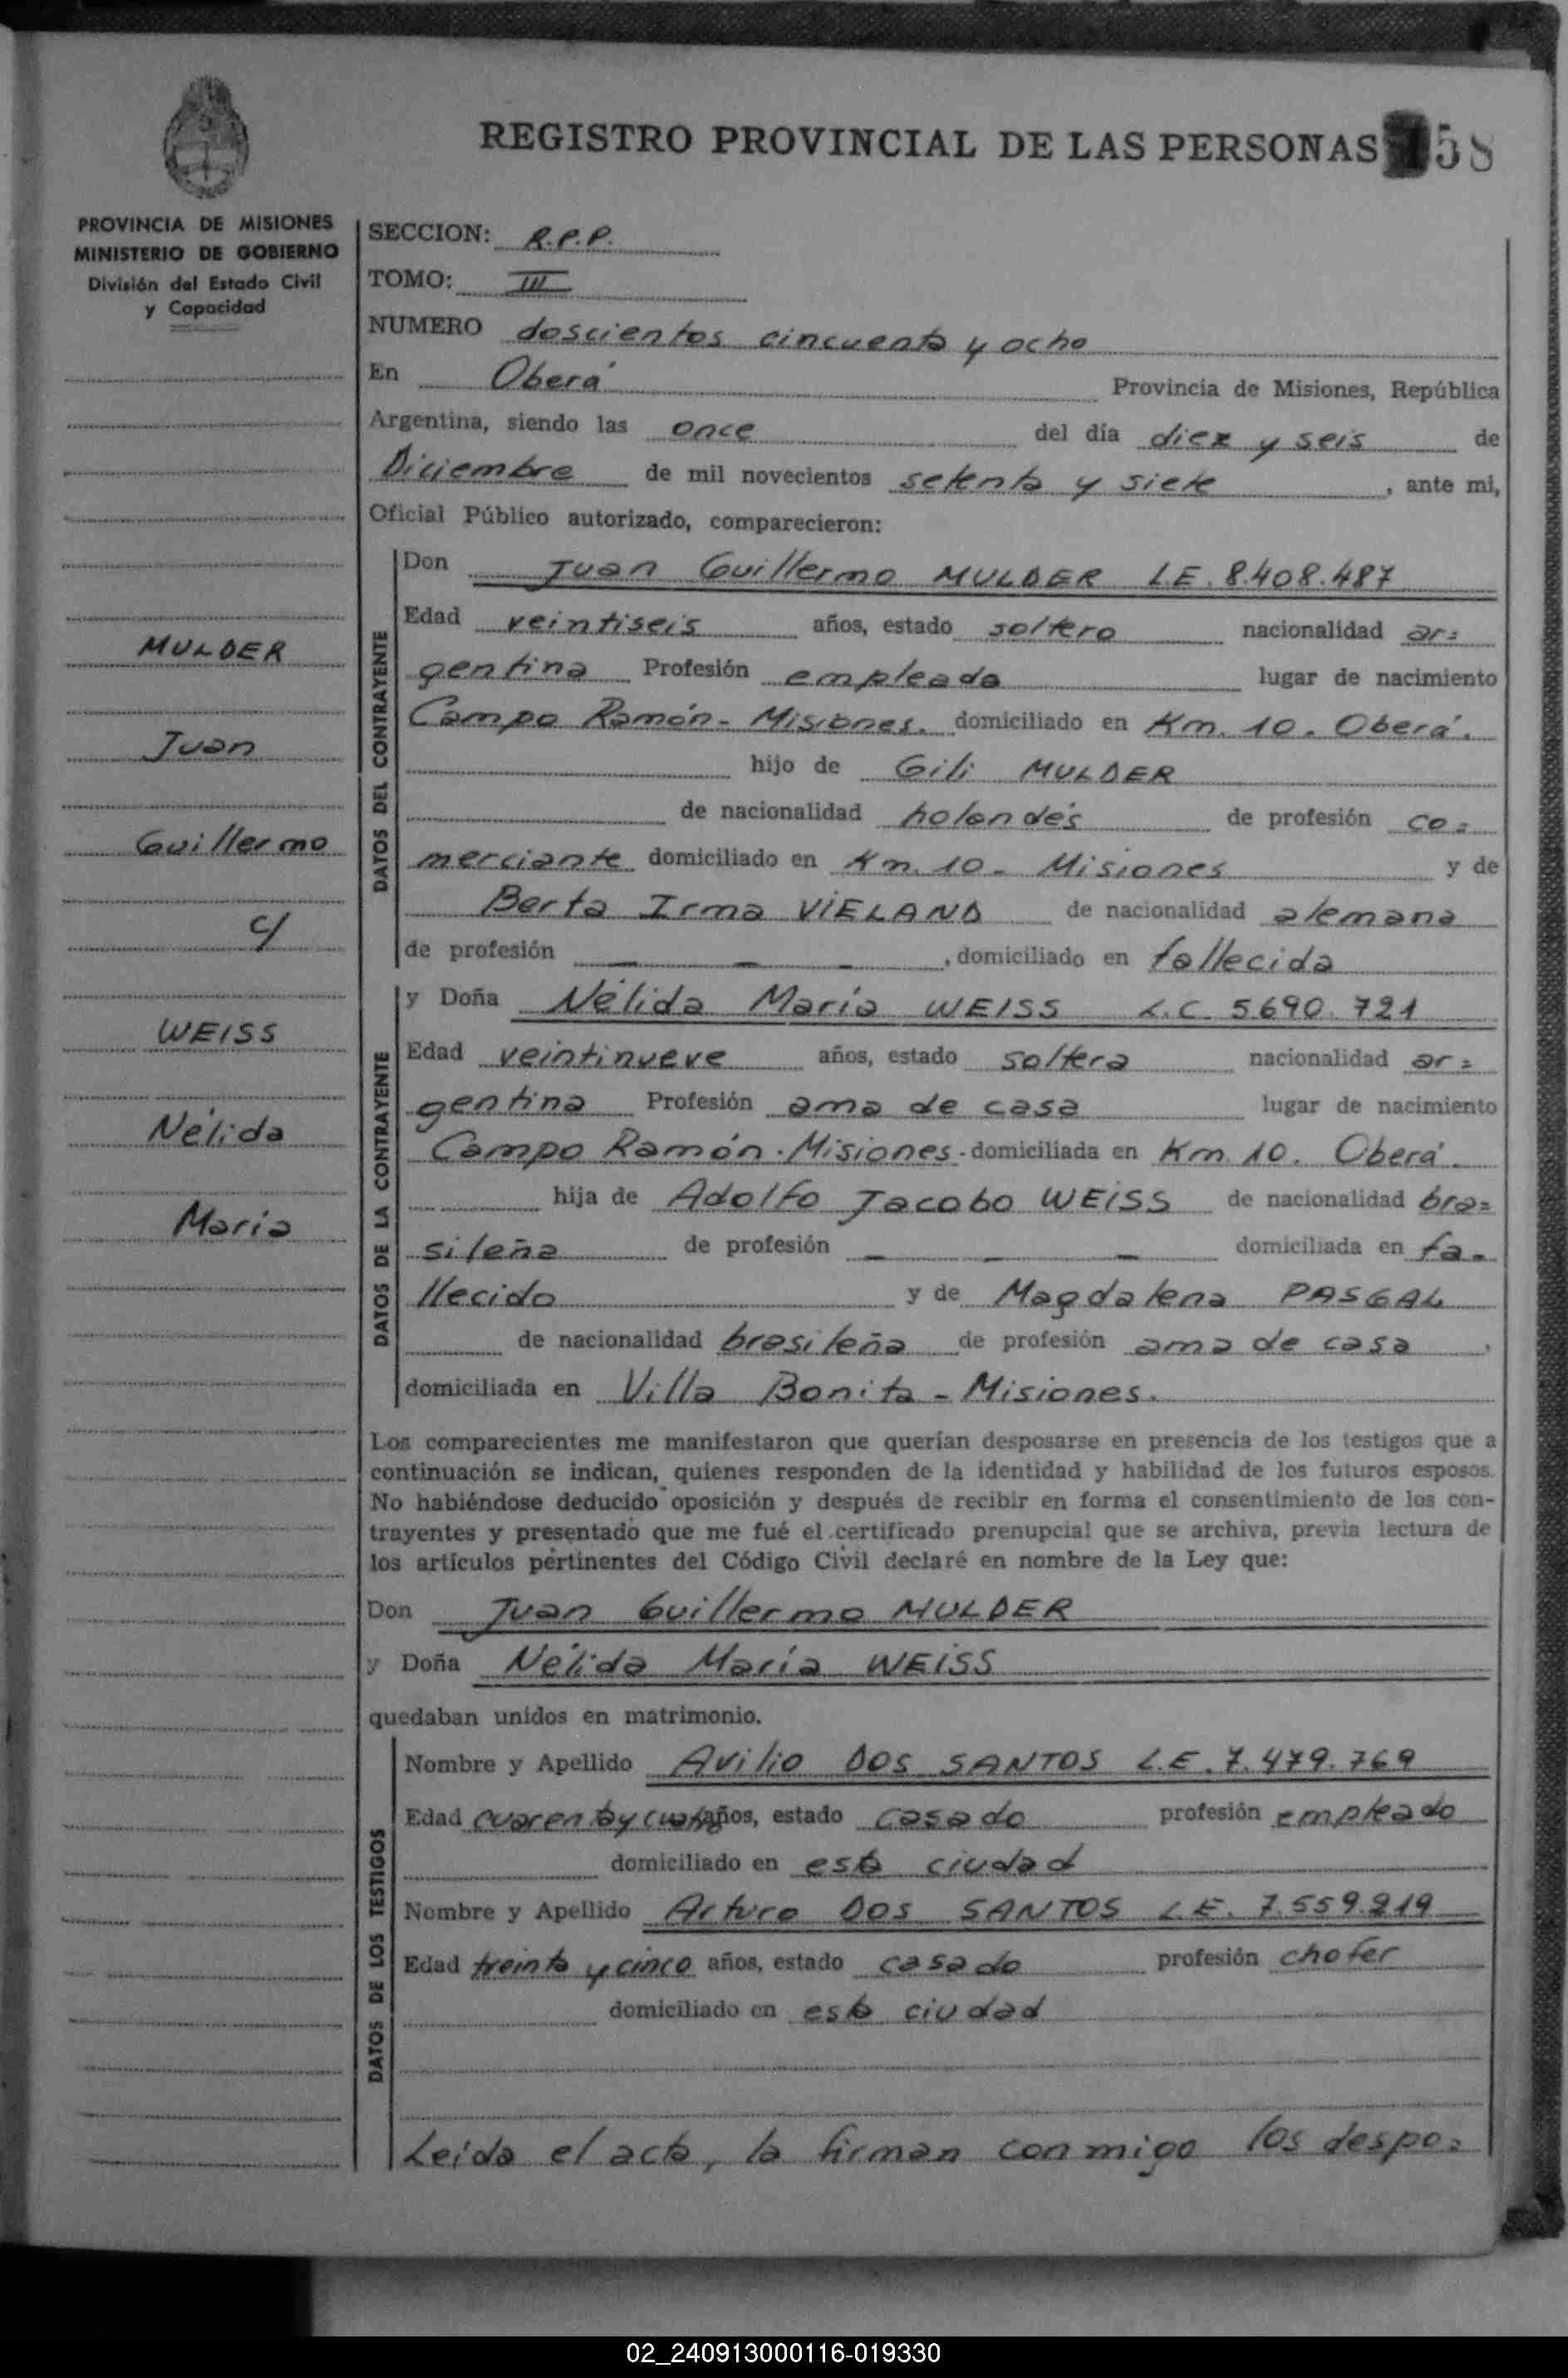 REGISTRO PROVINCIAL DE LAS PERSONAS 58
PROVINCIA DE MISIONES
MINISTERIO DE GOBIERNO
División del Estado Civil
y Capacidad
MULDER
Juan
Guillermo
c/
WEISS
Nélida
María
SECCION: R.P.P.
TOMO: III
NUMERO doscientos cincuenta y ocho
En Oberá Provincia de Misiones, República
Argentina, siendo las once del día diez y seis de
Diciembre de mil novecientos setenta y siete, ante mi,
Oficial Público autorizado, comparecieron:
DATOS DEL CONTRAYENTE
Don Juan Guillermo MULDER L.E. 8.408.487
Edad veintiseis años, estado soltero nacionalidad ar=
gentina Profesión empleado lugar de nacimiento
Campo Ramón - Misiones. domiciliado en Km. 10. Oberá.
hijo de Gili MULDER
de nacionalidad holandés de profesión co=
merciante domiciliado en Km. 10 - Misiones y de
Berta Irma VIELAND de nacionalidad alemana
de profesión _ _ _, domiciliado en fallecida
DATOS DE LA CONTRAYENTE
y Doña Nélida María WEISS L.C. 5690.721
Edad veintinueve años, estado soltera nacionalidad ar=
gentina Profesión ama de casa lugar de nacimiento
Campo Ramón - Misiones - domiciliada en Km. 10. Oberá.
hija de Adolfo Jacobo WEISS de nacionalidad bra=
sileña de profesión _ _ _ domiciliada en fa-
llecido y de Magdalena PASGAL
de nacionalidad brasileña de profesión ama de casa,
domiciliada en Villa Bonita - Misiones.
Los comparecientes me manifestaron que querían desposarse en presencia de los testigos que a
continuación se indican, quienes responden de la identidad y habilidad de los futuros esposos.
No habiéndose deducido oposición y después de recibir en forma el consentimiento de los con-
trayentes y presentado que me fué el certificado prenupcial que se archiva, previa lectura de
los artículos pertinentes del Código Civil declaré en nombre de la Ley que:
Don Juan Guillermo MULDER
y Doña Nélida María WEISS
quedaban unidos en matrimonio.
DATOS DE LOS TESTIGOS
Nombre y Apellido Avilio DOS SANTOS L.E. 7.479.769
Edad cuarenta y cuatro años, estado casado profesión empleado
domiciliado en esta ciudad
Nombre y Apellido Arturo DOS SANTOS L.E. 7.559.219
Edad treinta y cinco años, estado casado profesión chofer
domiciliado en esta ciudad
Leida el acta, la firman conmigo los despo=
02_240913000116-019330